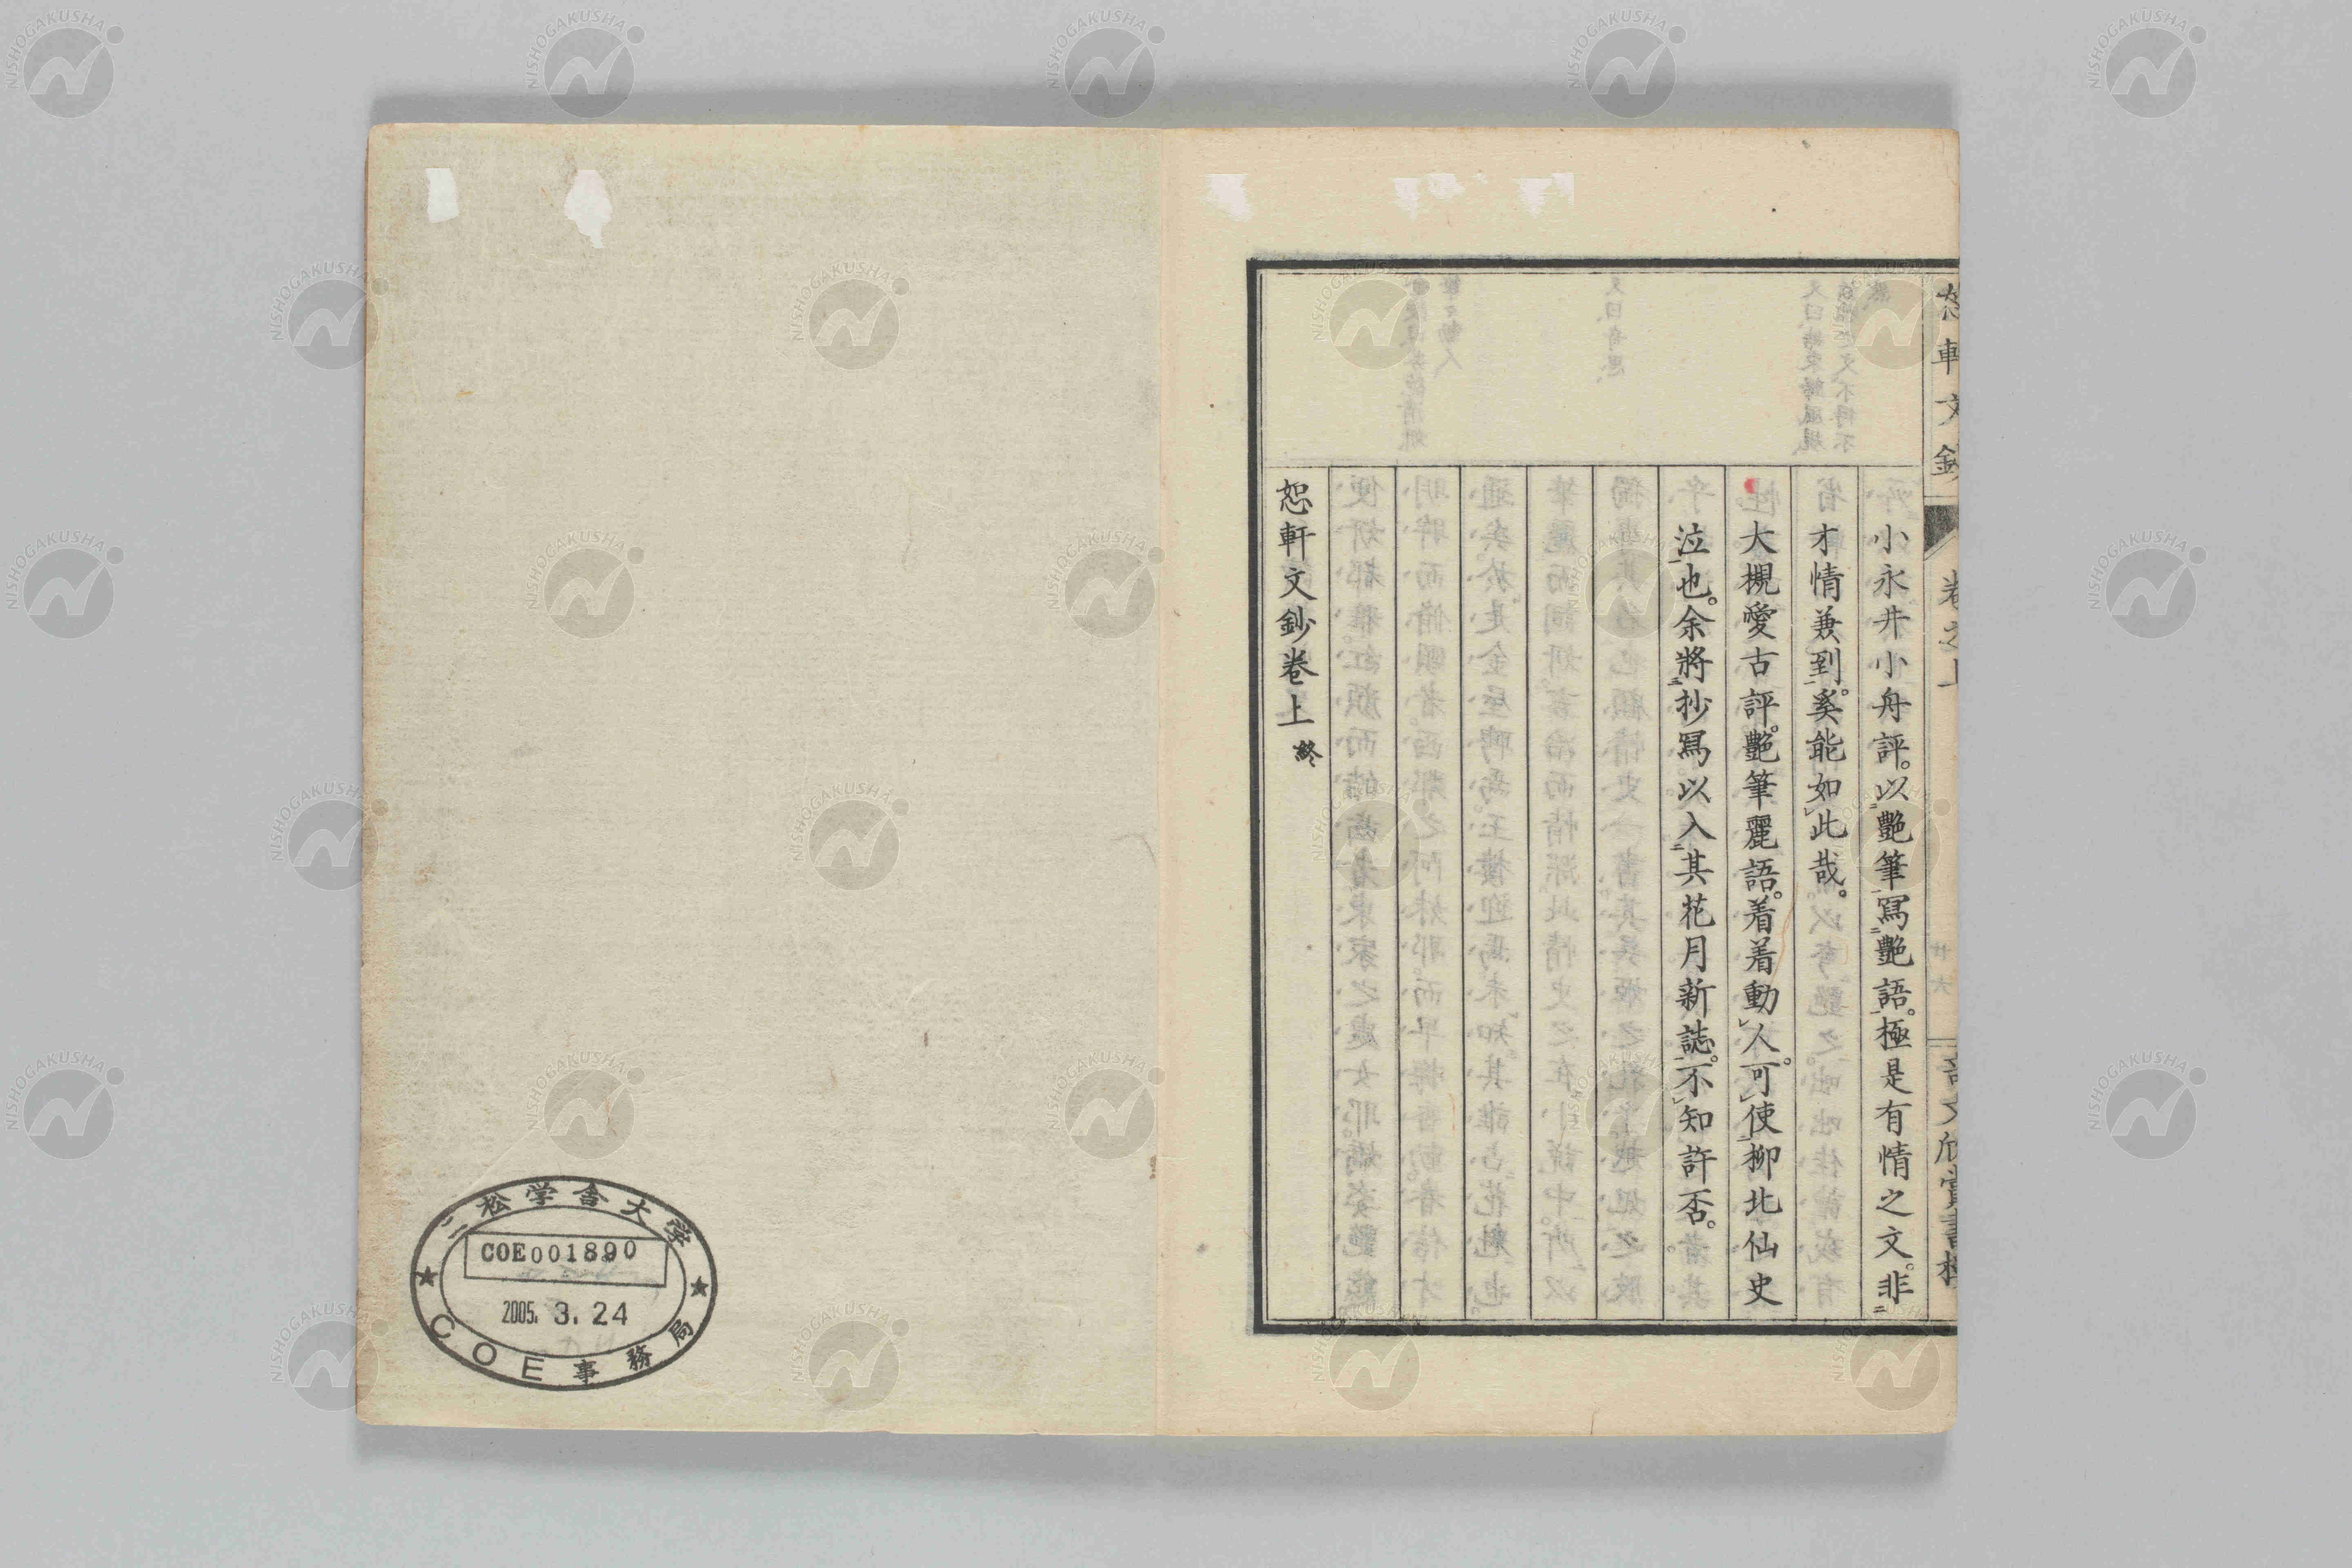 恕軒文鈔
卷之上
廿六
奇文欣賞書樓
小永井小舟評。以艷筆寫艷語。極是有情之文。非
才情兼到。奚能如此哉。
大槻愛古評。艷筆麗語。着着動人。可使柳北仙史
泣也。余將抄寫以入其花月新誌。不知許否。
恕軒文鈔卷上 終
二松学舎大学
COE001890
2005. 3. 24
COE事務局
NISHOGAKUSHA